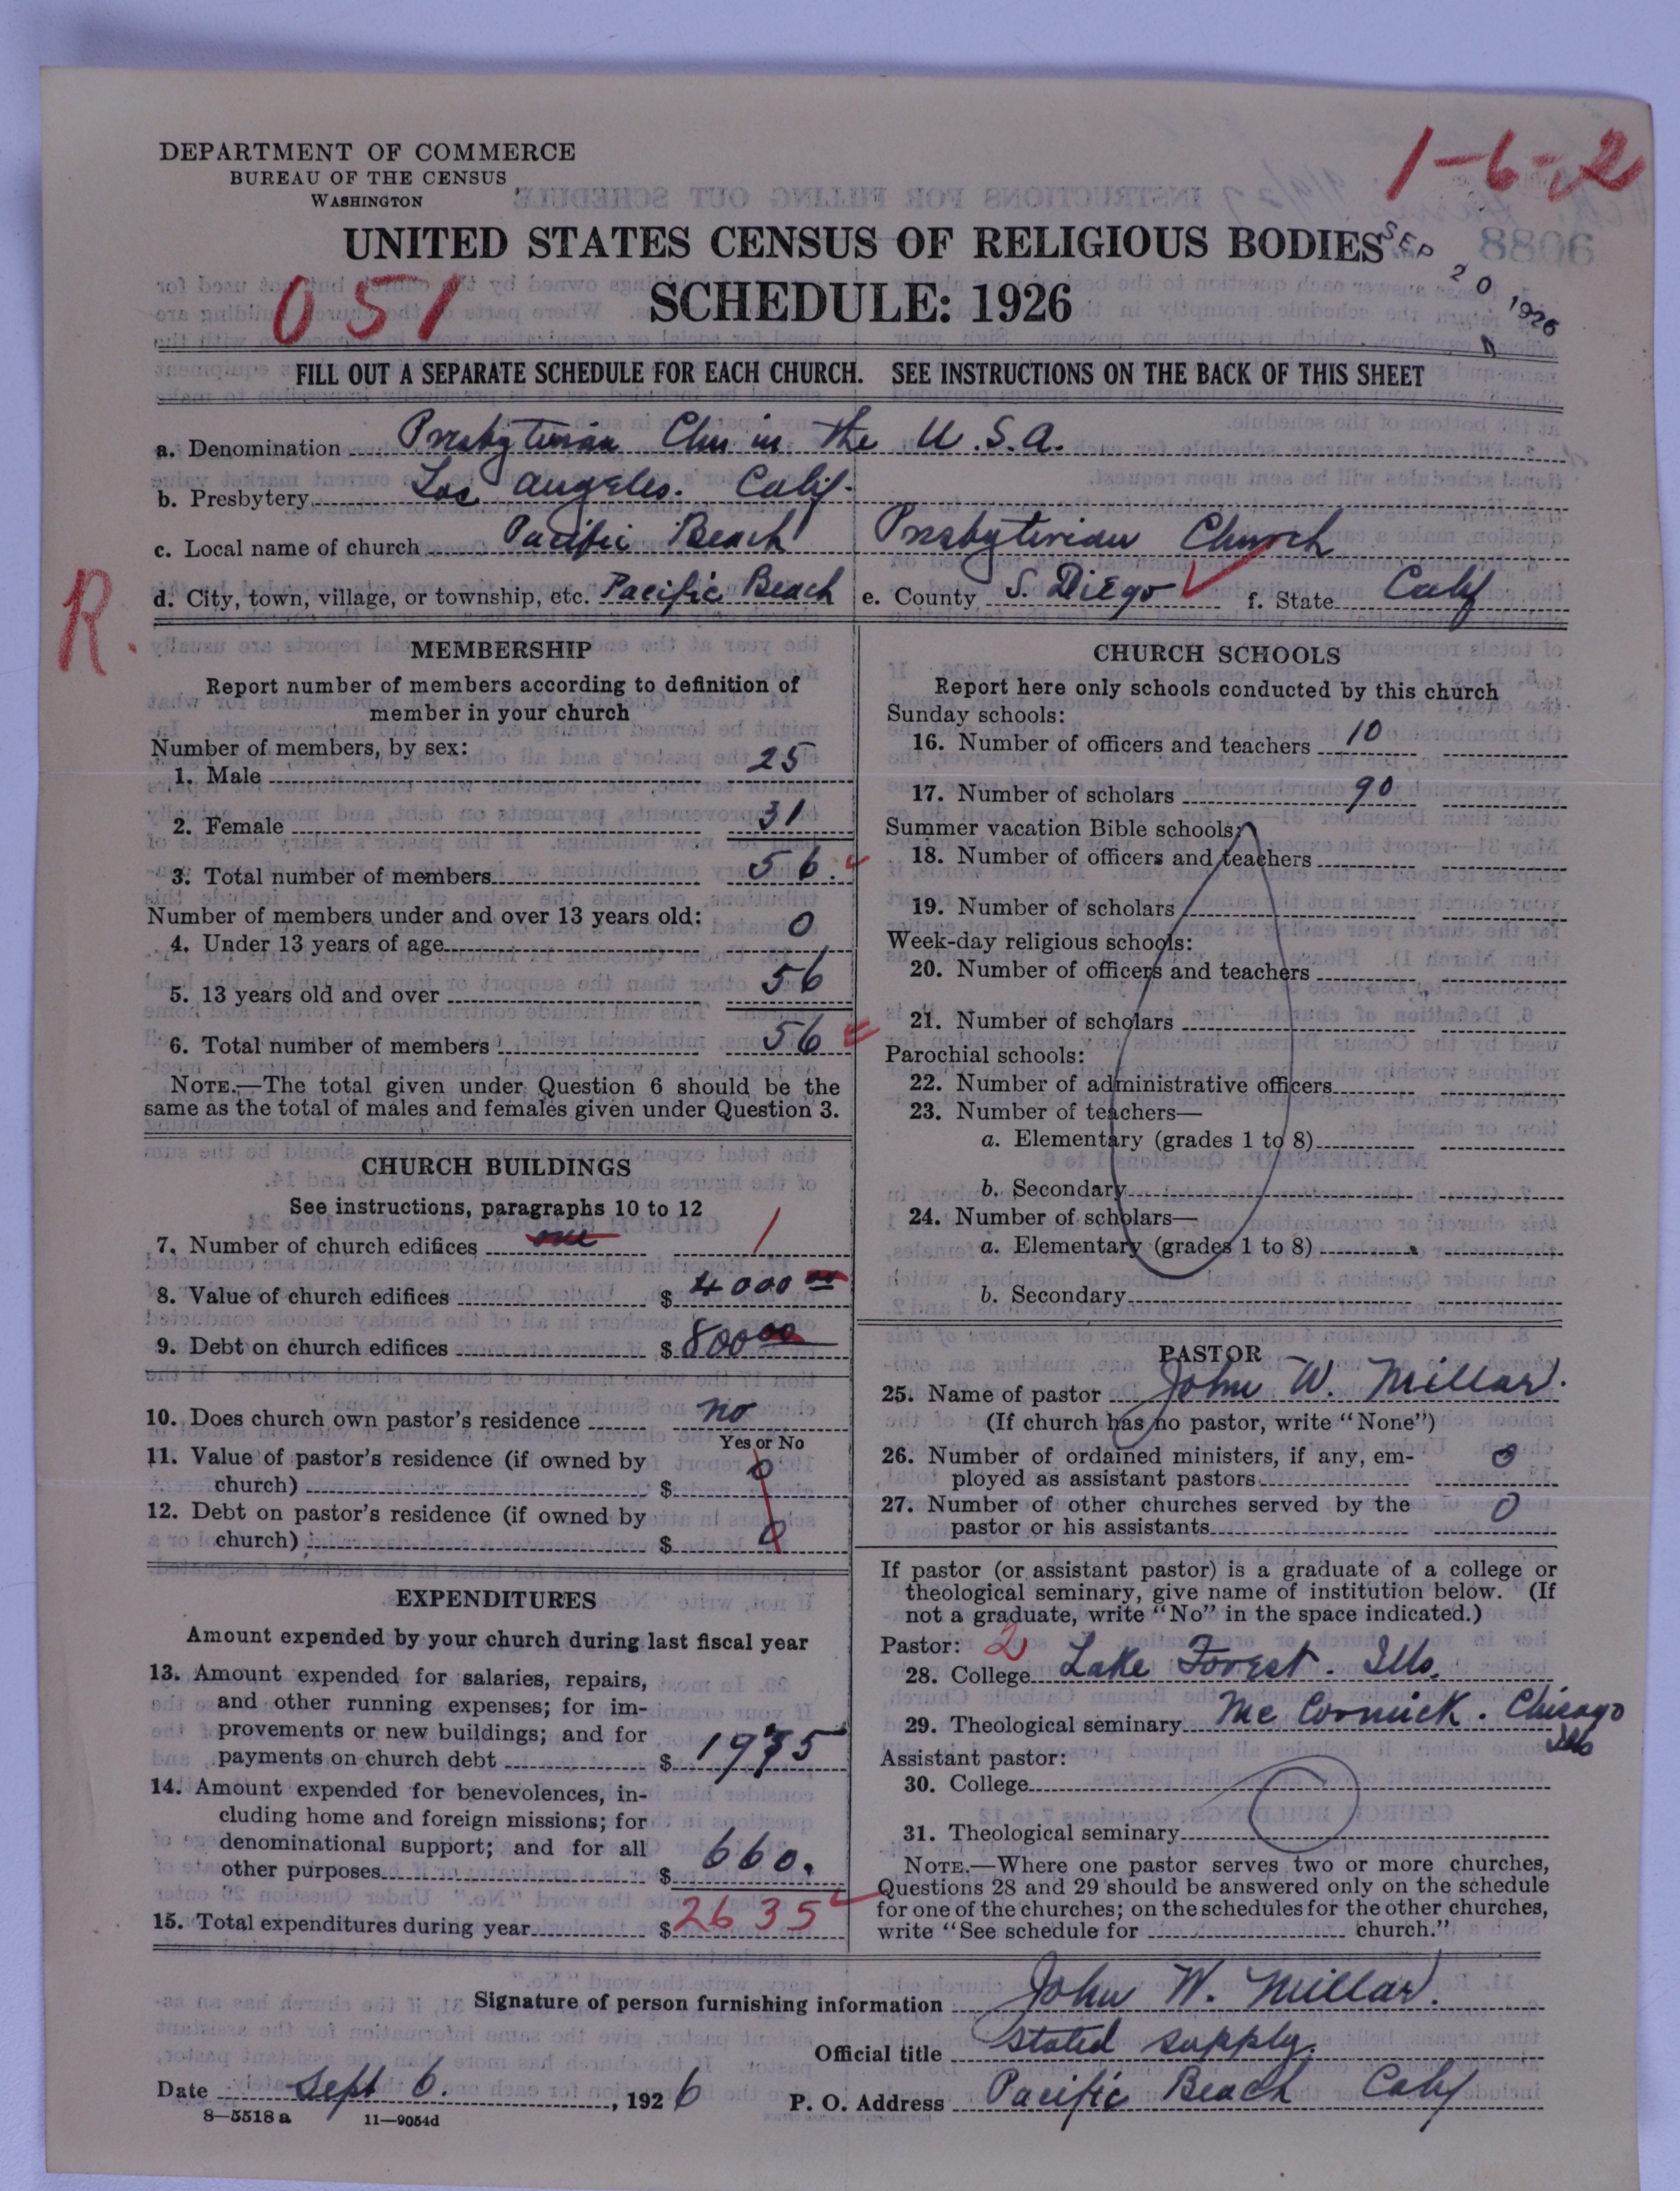 1-6-2
DEPARTMENT OF COMMERCE
BUREAU OF THE CENSUS
WASHINGTON
UNITED STATES CENSUS OF RELIGIOUS BODIES
SEP 20 1926
8806
051
SCHEDULE: 1926
FILL OUT A SEPARATE SCHEDULE FOR EACH CHURCH. SEE INSTRUCTIONS ON THE BACK OF THIS SHEET
a. Denomination Presbyterian Chu in the U.S.A.
b. Presbytery Los Angeles. Calif.
c. Local name of church Pacific Beach Presbyterian Church
d. City, town, village, or township, etc. Pacific Beach e. County S. Diego f. State Calif
R.
MEMBERSHIP
Report number of members according to definition of
member in your church
Number of members, by sex:
1. Male 25
2. Female 31
3. Total number of members 56.
Number of members under and over 13 years old:
4. Under 13 years of age 0
5. 13 years old and over 56
6. Total number of members 56
NOTE.—The total given under Question 6 should be the
same as the total of males and females given under Question 3.
CHURCH BUILDINGS
See instructions, paragraphs 10 to 12
7. Number of church edifices one 1
8. Value of church edifices $ 4000 00
9. Debt on church edifices $ 800 00
10. Does church own pastor's residence no
Yes or No
11. Value of pastor's residence (if owned by
church) $ 0
12. Debt on pastor's residence (if owned by
church) $ 0
EXPENDITURES
Amount expended by your church during last fiscal year
13. Amount expended for salaries, repairs,
and other running expenses; for im-
provements or new buildings; and for
payments on church debt $ 1975
14. Amount expended for benevolences, in-
cluding home and foreign missions; for
denominational support; and for all
other purposes $ 660.
15. Total expenditures during year $ 2635
CHURCH SCHOOLS
Report here only schools conducted by this church
Sunday schools:
16. Number of officers and teachers 10
17. Number of scholars 90
Summer vacation Bible schools:
18. Number of officers and teachers
19. Number of scholars
Week-day religious schools:
20. Number of officers and teachers
21. Number of scholars
Parochial schools:
22. Number of administrative officers
23. Number of teachers—
a. Elementary (grades 1 to 8)
b. Secondary
24. Number of scholars—
a. Elementary (grades 1 to 8)
b. Secondary
PASTOR
25. Name of pastor John W. Millar.
(If church has no pastor, write "None")
26. Number of ordained ministers, if any, em-
ployed as assistant pastors 0
27. Number of other churches served by the
pastor or his assistants 0
If pastor (or assistant pastor) is a graduate of a college or
theological seminary, give name of institution below. (If
not a graduate, write "No" in the space indicated.)
Pastor: 2
28. College Lake Forest. Ills.
29. Theological seminary Mc Cormick. Chicago
Ills
Assistant pastor:
30. College
31. Theological seminary
NOTE.—Where one pastor serves two or more churches,
Questions 28 and 29 should be answered only on the schedule
for one of the churches; on the schedules for the other churches,
write "See schedule for church."
Signature of person furnishing information John W. Millar.
Official title Stated supply.
Date Sept 6. , 1926 P. O. Address Pacific Beach Calif
8—5518a 11—9054d